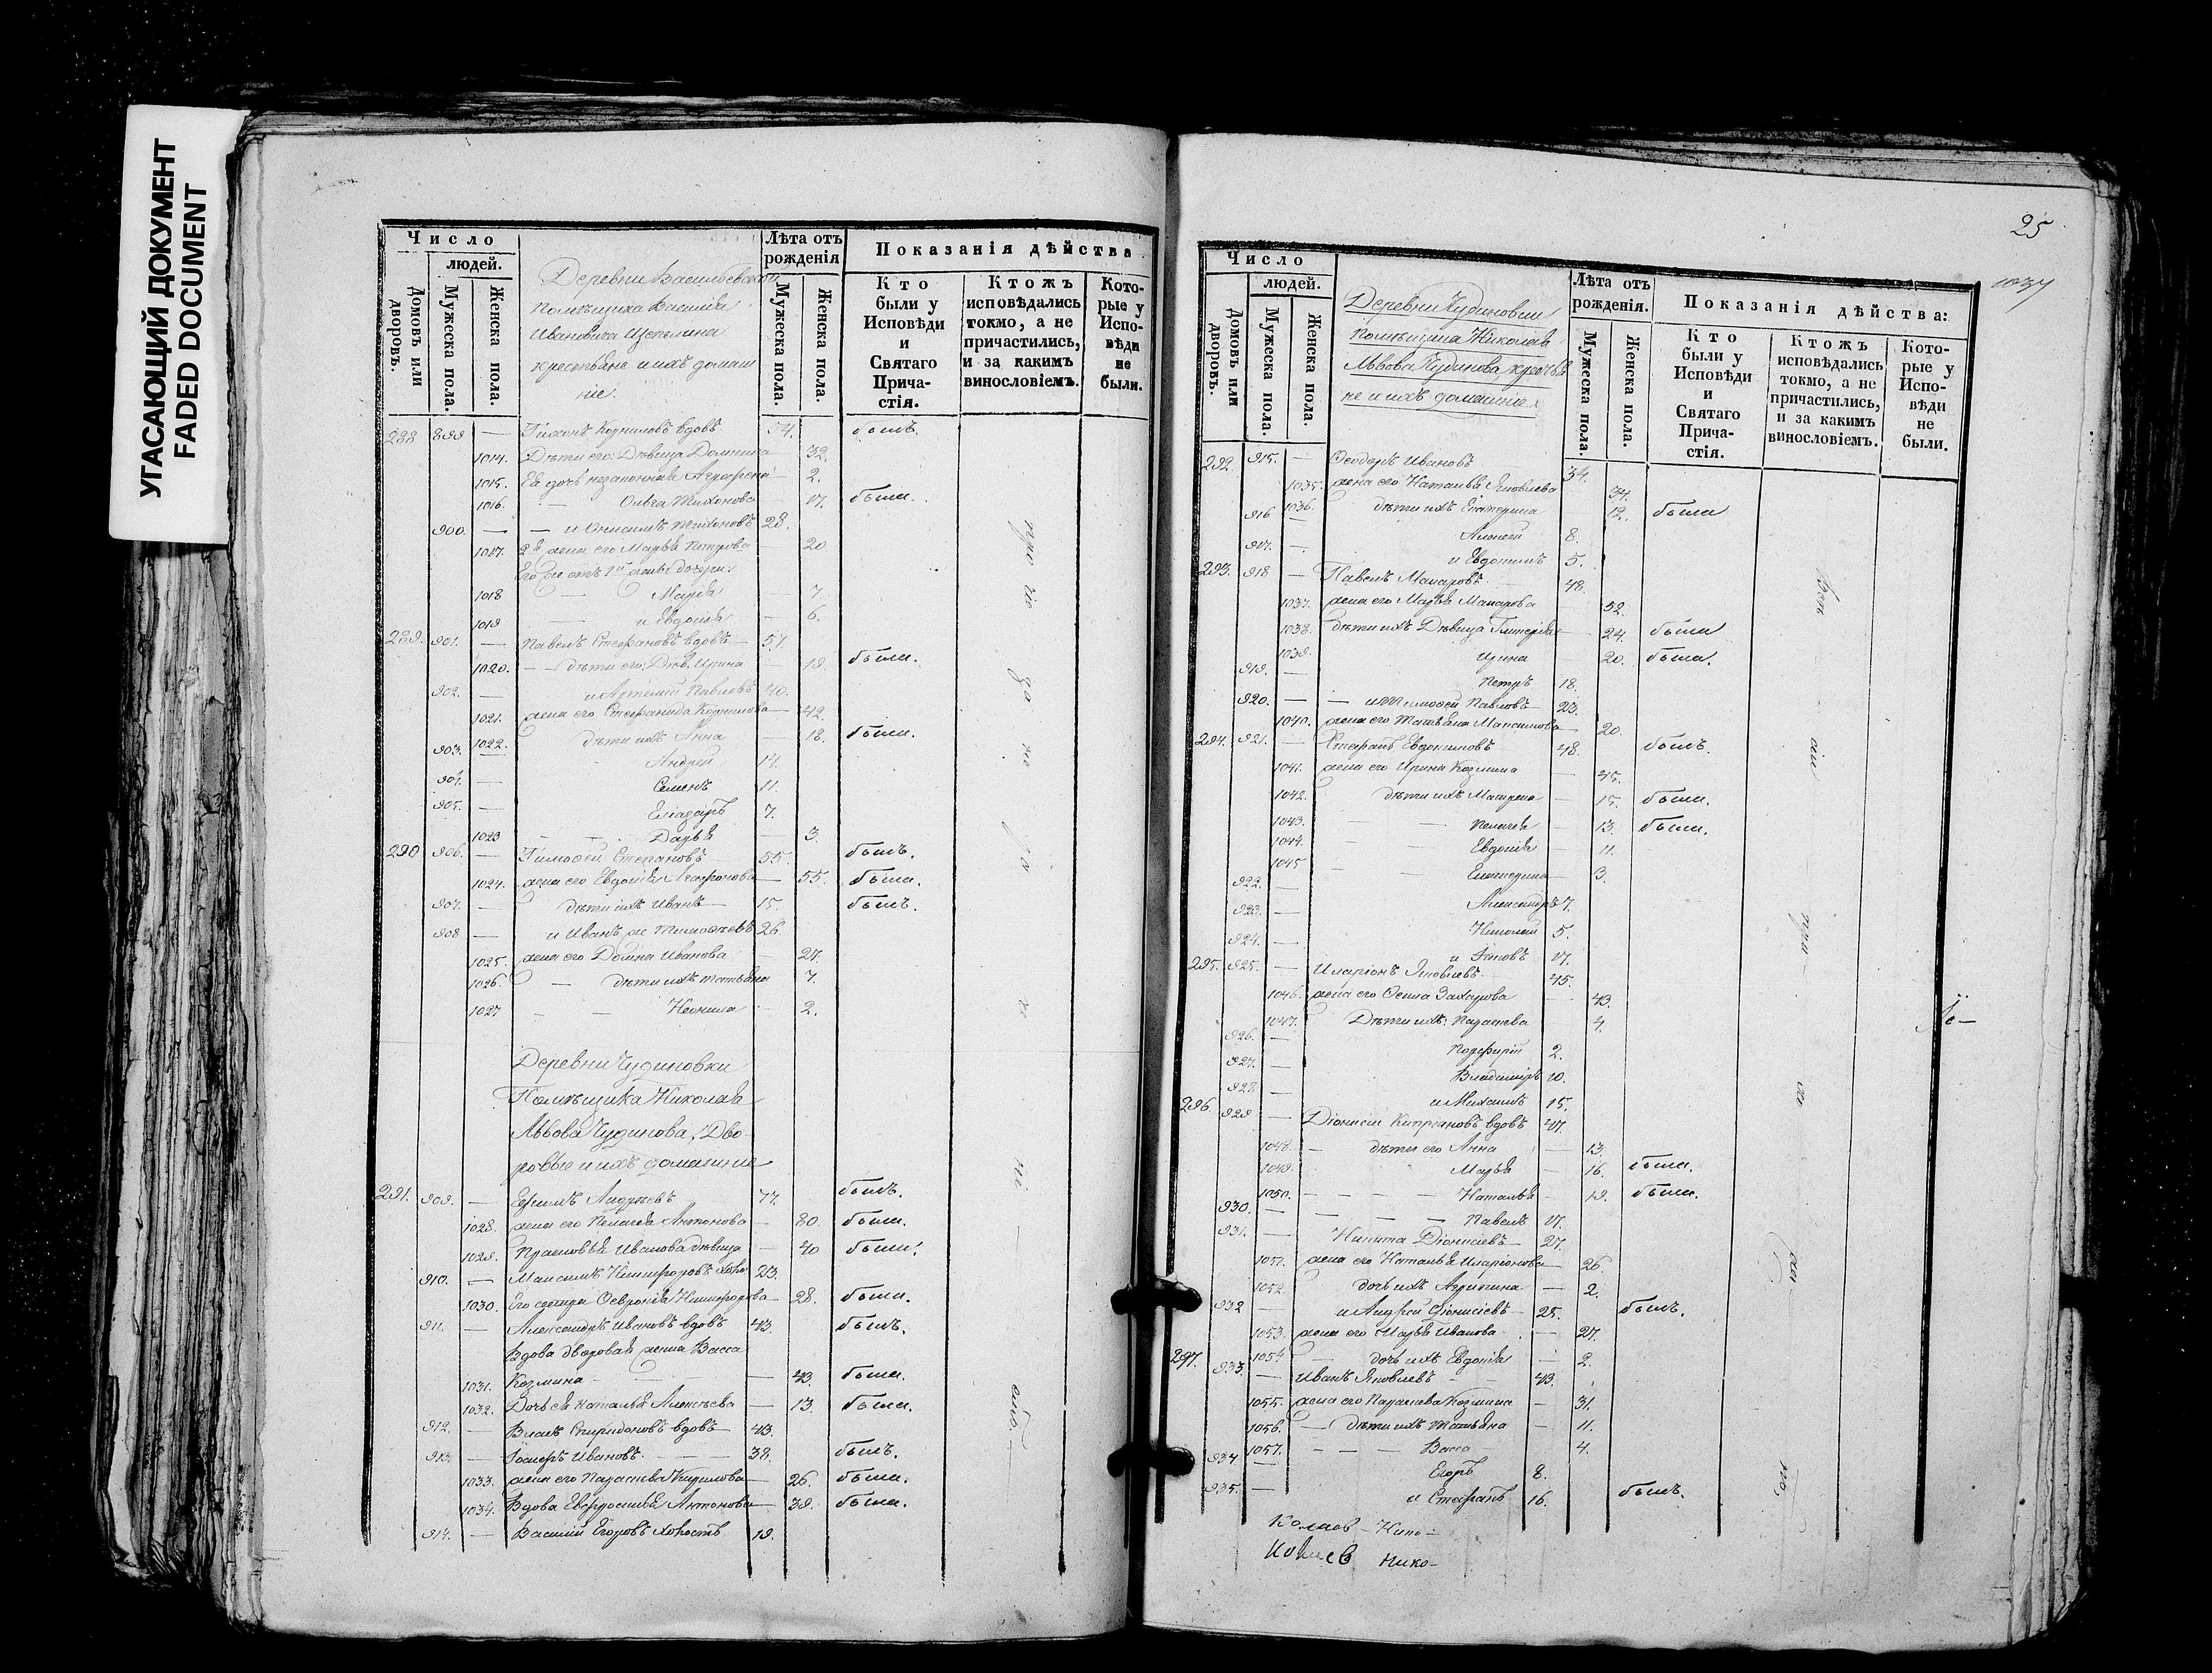 УГАСАЮЩИЙ ДОКУМЕНТ
FADED DOCUMENT
Число
людей.
Домовъ или дворовъ.
Мужеска пола.
Женска пола.
Деревни Васильевской
Помѣщика Василія
Ивановича
крестьяне и ихъ домаш
ніе.
Лѣта отъ рожденія
Мужеска пола.
Женска пола.
Показанія дѣйства
Кто были у Исповѣди и Святаго Причастія.
Ктожъ исповѣдались токмо, а не причастились, и за какимъ винословіемъ.
Которые у Исповѣди не были.
288 899 — Тихонъ Корниловъ вдовъ 54. былъ.
1014. Дѣти его: Дѣвица Домника 32.
1015. Ея дочь незаконная Аграфена 2.
1016. — Ольга Тихонова 17. была.
900. — и Онисимъ Тихоновъ 28.
1017. 2я жена его Марья Петрова — 20
Его же отъ 1й жены дочери:
1018 — Марья — 7.
1019 — и Евдокія — 6.
289. 901. — Павелъ Стефановъ вдовъ 57.
1020. — дѣти его: Дѣв. Ирина — 19. была.
902. — и Артемій Павловъ 40.
1021. жена его Стефанида Корнилова — 42.
1022. дѣти ихъ Анна — 18. была.
903. Андрей 14.
904. — Семенъ 11.
905. — Еліазаръ 7.
1023 — — Дарья — 3.
290 906. — Тимофей Степановъ 55. былъ.
1024. жена его Евдокія Агафонова — 55. была.
907. — дѣти ихъ Иванъ — 15. былъ.
908 — и Иванъ же Тимофеевъ 26.
1025. жена его Домна Иванова — 27.
1026. — дѣти ихъ Татьяна 7.
1027 — — Неонила 2.
Деревни Чудиновки
Помѣщика Николая
Львова Чудинова, Дво
ровые и ихъ домашніе
291. 909. — Ефимъ Андреевъ 77. былъ.
1028. жена его Пелагея Антонова — 80. была.
1029. Прасковья Иванова дѣвица — 40 была.
910. — Максимъ Никифоровъ 23.
1030. Его сестра Февронія Никифорова — 28. была.
911. — Александръ Ивановъ вдовъ 43. былъ.
Вдова дворовая жена Васса
1031. Козмина — 43. была.
1032. Дочь ея Наталья Алексѣева — 13. была.
912. — Власъ Спиридоновъ вдовъ 43.
913. — Ивановъ — 38. былъ.
1033. жена его Параскева Кирилова — 26. была.
1034. Вдова Евфросинья Антонова — 39. была.
914. — Василій Егоровъ холостъ 19.
25
1034
Число
людей.
Домовъ или дворовъ.
Мужеска пола.
Женска пола.
Деревни Чудиновки
помѣщика Николая
Львова Чудинова, крестья
не и ихъ домашніе
Лѣта отъ рожденія.
Мужеска пола.
Женска пола.
Показанія дѣйства:
Кто были у Исповѣди и Святаго Причастія.
Ктожъ исповѣдались токмо, а не причастились, и за какимъ винословіемъ.
Которые у Исповѣди не были.
292. 915. — Феодоръ Ивановъ 34.
1035. жена его Наталья Яковлева 34.
1036. дѣти ихъ Екатерина — 12. была
916 — Алексей 8.
917. — и Евдокимъ 5.
293. 918 — Павелъ Макаровъ 48.
1037. жена его Марья Макарова 52.
1038. дѣти ихъ Дѣвица Гликерія 24. была
1039. Ирина 20. была.
919. — Петръ 18.
920. — — и Тимофей Павловъ 23.
1040. жена его Татьяна Максимова 20.
294. 921. — Стефанъ Евдокимовъ 48. былъ.
1041. жена его Ирина Козмина — 45.
1042. дѣти ихъ Матрена — 15. была.
1043. — Пелагея — 13. была.
1044. — Евдокія — 11.
1045 — Екатерина — 3.
922. — Александръ 7.
923. — Николай 5.
924. — и Яковъ 17.
295. 925. — Иларіонъ Яковлевъ 45.
1046. жена его Фекла Захарова — 43.
1047. Дѣти ихъ: Параскева 4.
926. — Порфирій 2.
927. — Владиміръ 10.
928. — и Михаилъ 15.
296 929 — Діонисій Кипріановъ вдовъ 47.
1048. — дѣти его Анна — 13.
1049. Марья — 16. была.
1050. — Наталья — 19. была.
930. — Павелъ 17.
931. — Никита Діонисіевъ 27.
1051. жена его Наталья Иларіонова 26
1052. дочь ихъ Агрипина — 2.
932 — и Андрей Діонисіевъ 25. былъ.
1053. жена его Марья Иванова — 27.
1054 дочь ихъ Евдокія — 2.
297. 933 — Иванъ Яковлевъ — 43.
1055. жена его Параскева Козмина — 31.
1056. — дѣти ихъ Татьяна — 11.
1057. — Васса 4.
934. — Егоръ 8.
935. — и Стефанъ 16. былъ.